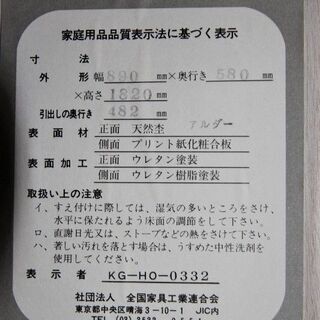 家庭用品品質表示法に基づく表示
寸法
外形 幅890mm×奥行き580mm
×高さ1820mm
引出しの奥行き 482mm
表面材 正面 天然杢 アルダー
側面 プリント紙化粧合板
表面加工 正面 ウレタン塗装
側面 ウレタン樹脂塗装
取扱い上の注意
イ、すえ付けに際しては、湿気の多いところをさけ、
水平に保たれるよう床面の調節をして下さい。
ロ、直謝日光又は、ストーブなどの熱をさけて下さい。
ハ、著しい汚れを落とす場合は、うすめた中性洗剤を
使用して下さい。
表示者 KG-HO-0332
社団法人 全国家具工業連合会
東京都中央区晴海3-10-1 JIC内
TEL (03)